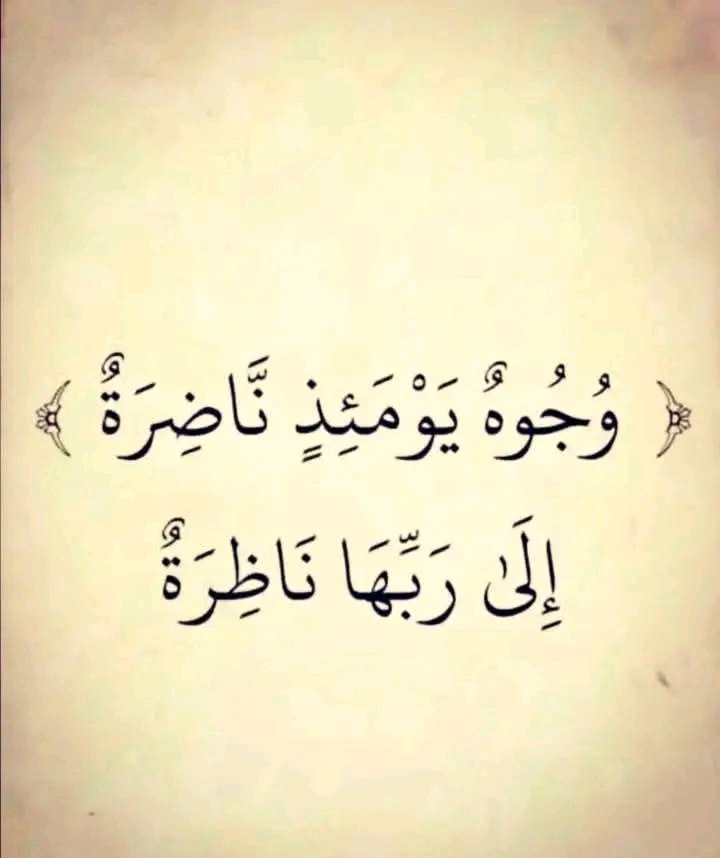 ﴿ وُجُوهٌ يَوْمَئِذٍ نَّاضِرَةٌ ﴾
إِلَىٰ رَبِّهَا نَاظِرَةٌ